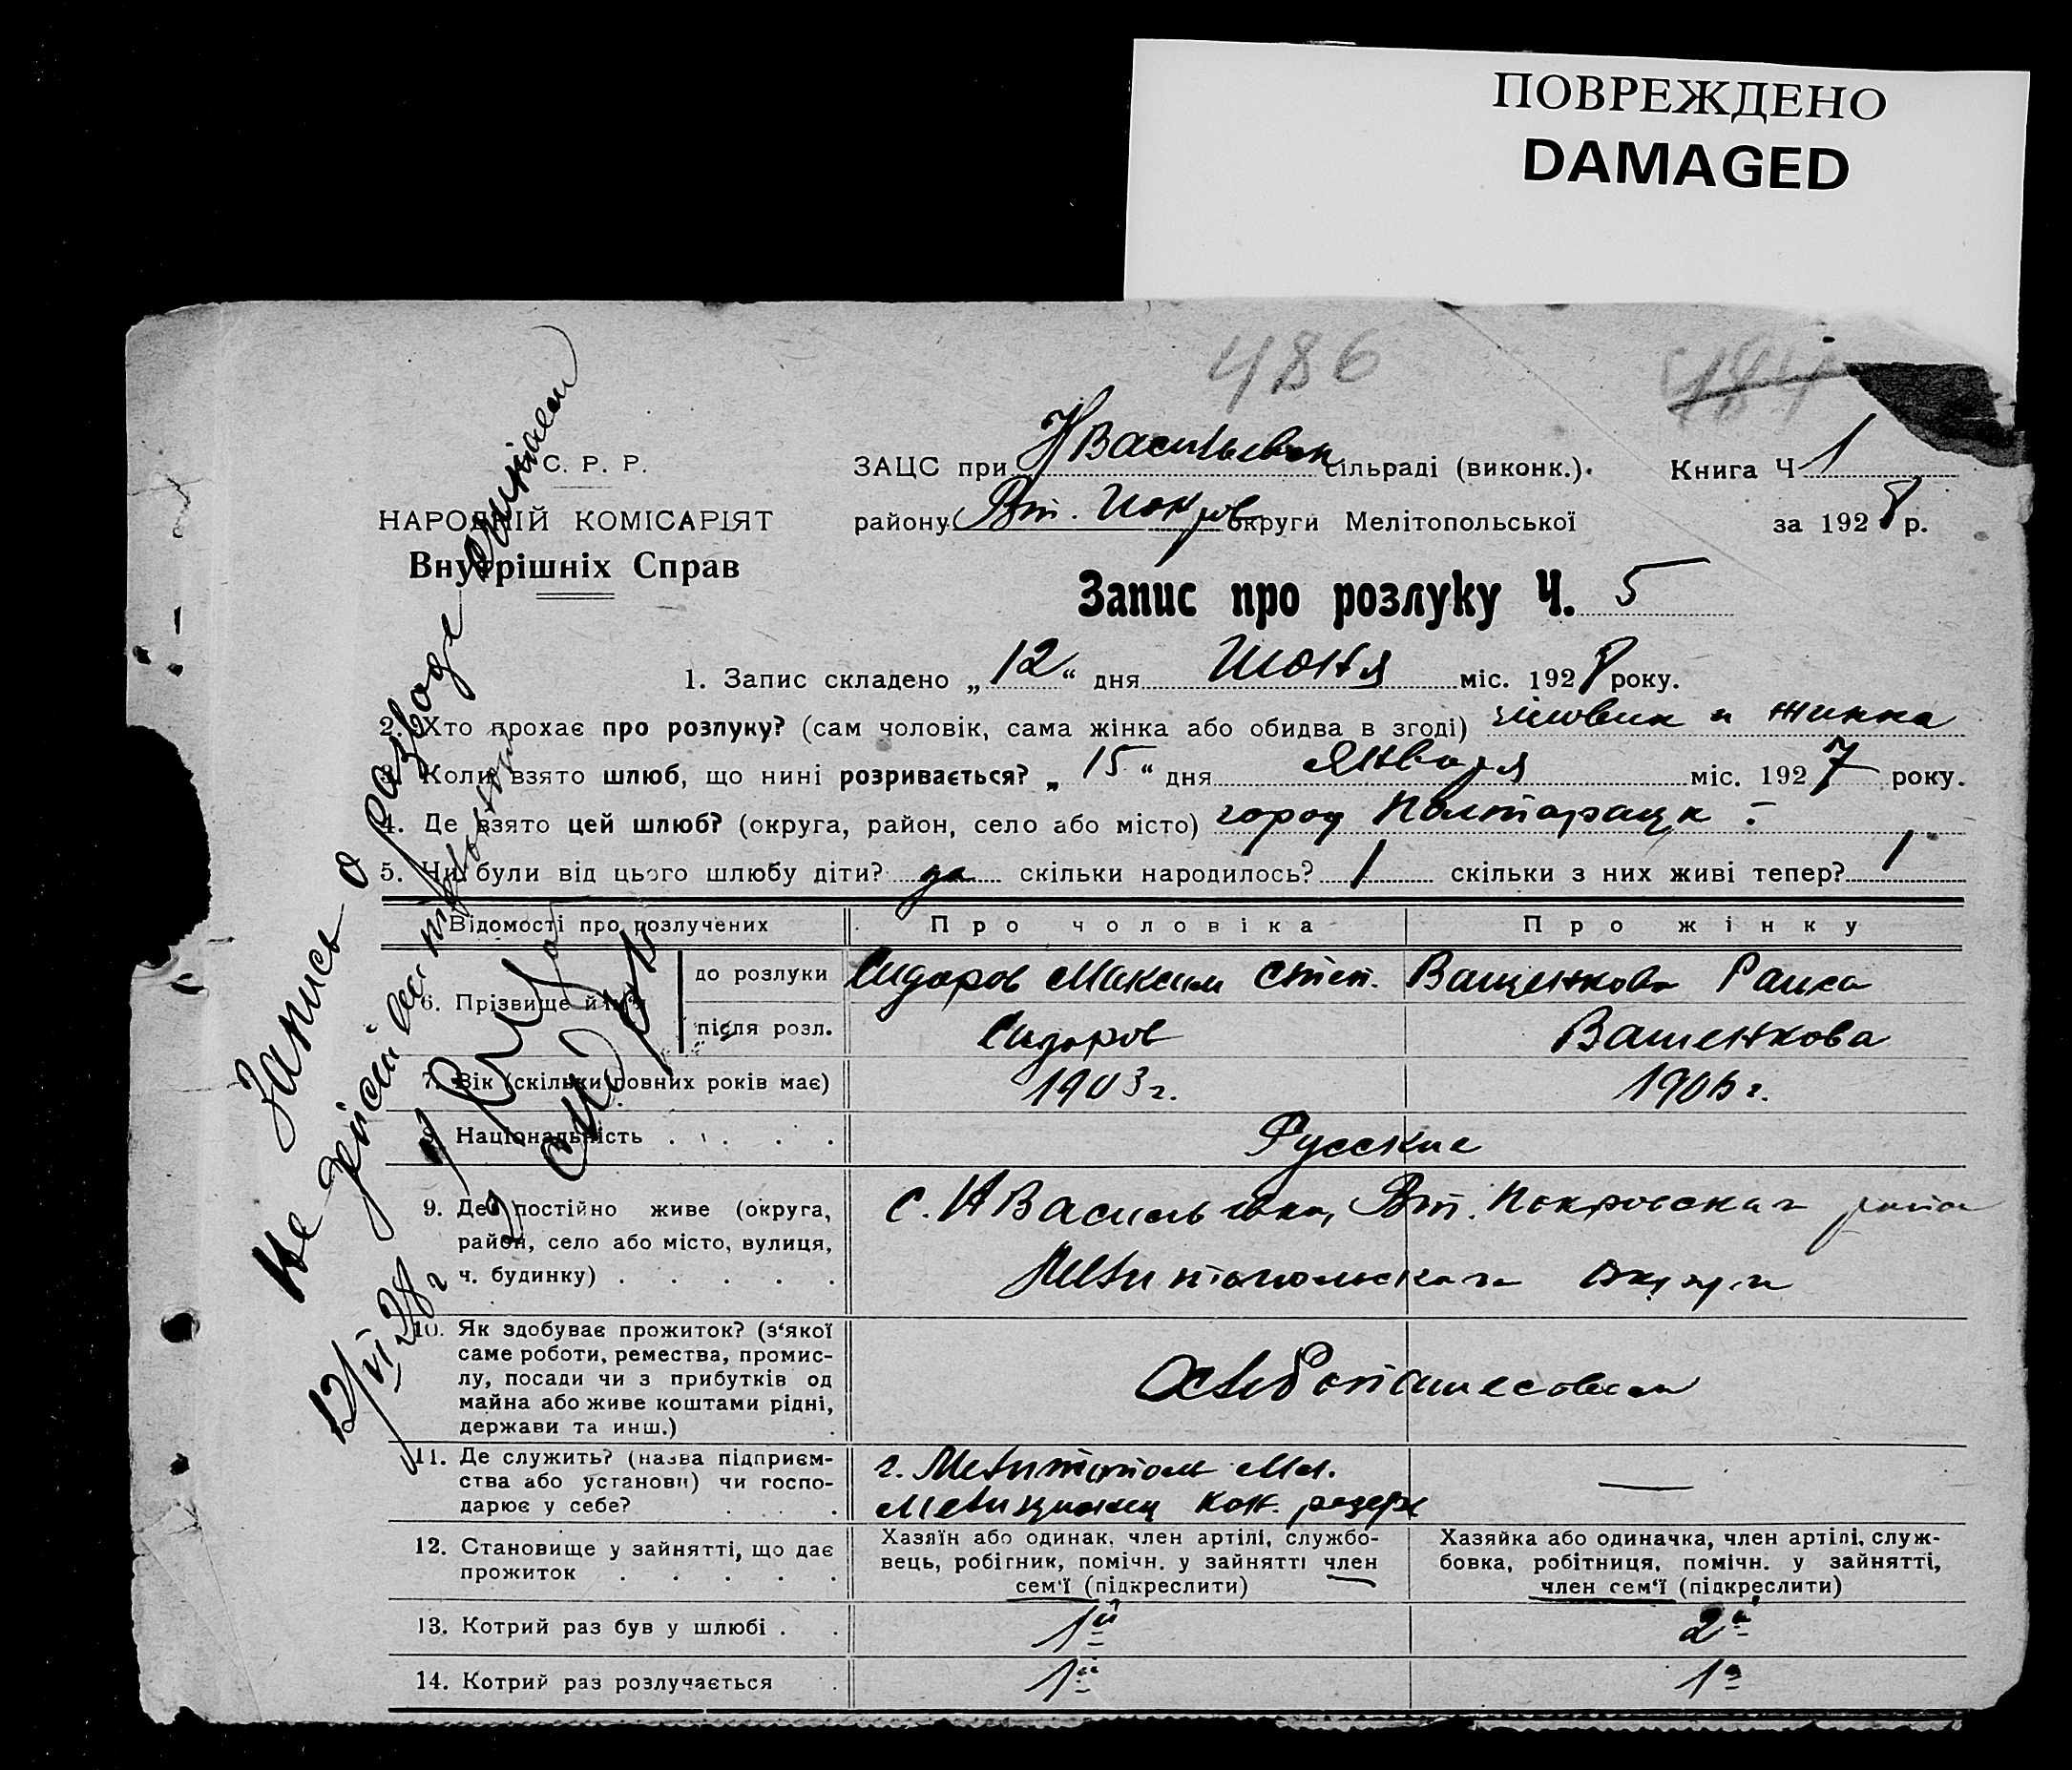 ПОВРЕЖДЕНО
DAMAGED
486
484
С. Р. Р.
НАРОДНІЙ КОМІСАРІЯТ
Внутрішніх Справ
ЗАЦС при Н Васильевск сільраді (виконк.).
Книга Ч 1
району Вт. Покров округи Мелітопольської
за 1928 р.
Запис про розлуку Ч. 5
1. Запис складено „12“ дня Июня міс. 1928 року.
2. Хто прохає про розлуку? (сам чоловік, сама жінка або обидва в згоді) человик и жинка
3. Коли взято шлюб, що нині розривається? „15“ дня Января міс. 1927 року.
4. Де взято цей шлюб? (округа, район, село або місто) город Полторацк
5. Чи були від цього шлюбу діти? да скільки народилось? 1 скільки з них живі тепер? 1
Відомості про розлучених
Про чоловіка
Про жінку
6. Прізвище й ім'я
до розлуки Сидоров Максим Степ. Ващенкова Раиса
після розл. Сидоров Ващенкова
7. Вік (скільки повних років має) 1903 г. 1906 г.
8. Національність . . . . Русские
9. Де постійно живе (округа, район, село або місто, вулиця, ч. будинку) . . . . .
с. Н Васильевка, Вт. Покровскаго района
Мелитопольскаго округа
10. Як здобуває прожиток? (з'якої саме роботи, ремества, промислу, посади чи з прибутків од майна або живе коштами рідні, держави та инш.)
Хлебопашеством
11. Де служить? (назва підприємства або установи) чи господарює у себе? . . . .
г. Мелитополь Мл.
кон. резерв
—
12. Становище у зайнятті, що дає прожиток . . . . .
Хазяїн або одинак, член артілі, службовець, робігник, помічн. у зайнятті член сем'ї (підкреслити)
Хазяйка або одиначка, член артілі, службовка, робітниця, помічн. у зайнятті, член сем'ї (підкреслити)
13. Котрий раз був у шлюбі . . 1й 2й
14. Котрий раз розлучається . 1й 1й
Запись о разводе считаем
не действительной
12/VI 28 г.
Сидоров